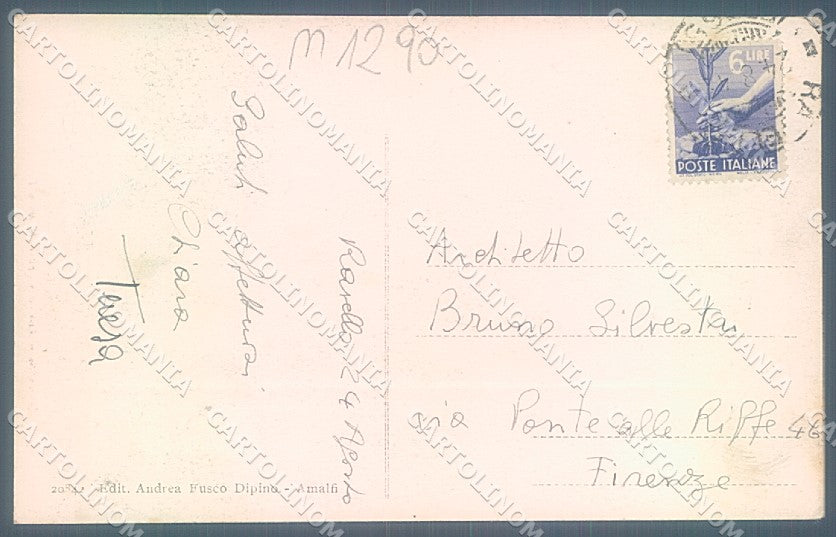 m 1290
6 LIRE
POSTE ITALIANE
RA
Ravello 24 Agosto
Saluti affettuosi
Chiara
Teresa
Architetto
Bruno Silvestri
via Ponte alle Riffe 46
Firenze
Edit. Andrea Fusco Dipino - Amalfi
CARTOLINOMANIA